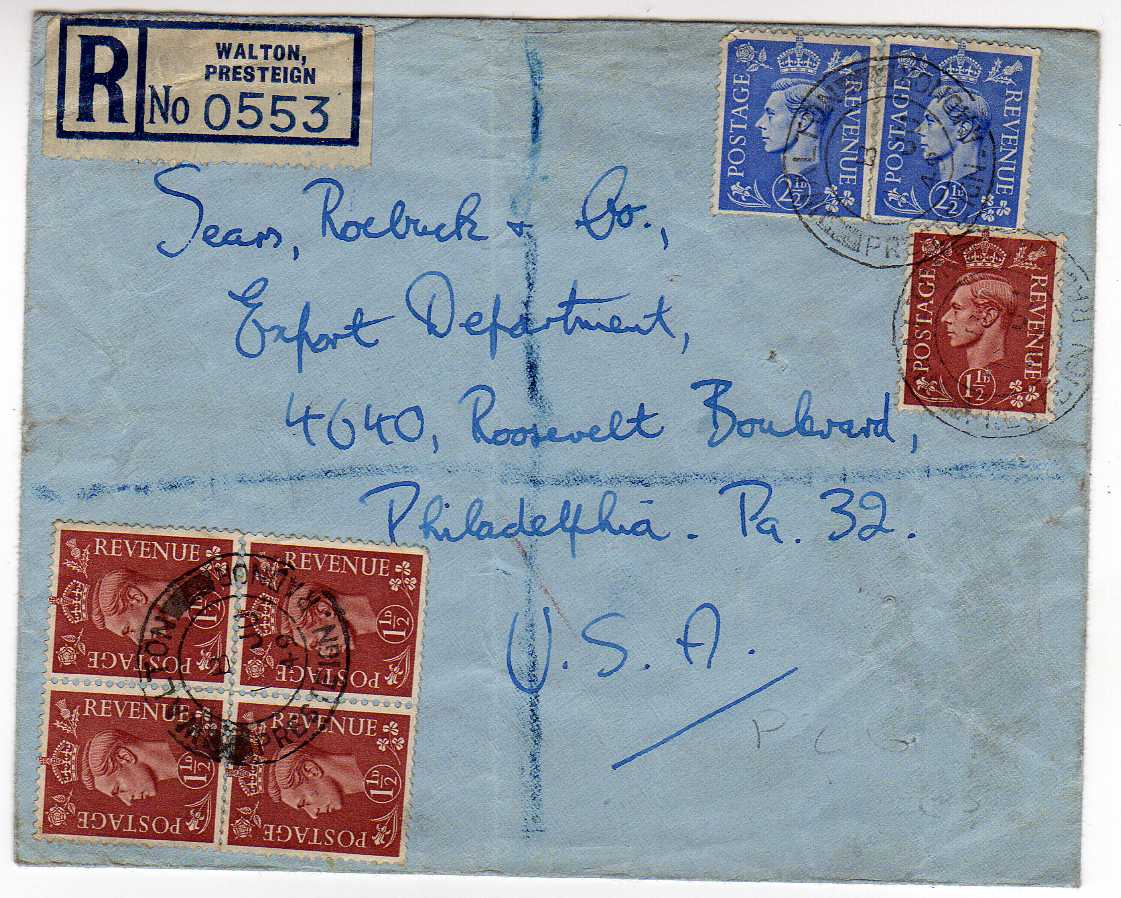 R
WALTON,
PRESTEIGN
No 0553
POSTAGE REVENUE 2½D
POSTAGE REVENUE 2½D
POSTAGE REVENUE 1½D
Sears, Roebuck & Co.,
Export Department,
4640, Roosevelt Boulevard,
Philadelphia. Pa. 32.
U. S. A.
POSTAGE REVENUE 1½D
POSTAGE REVENUE 1½D
POSTAGE REVENUE 1½D
POSTAGE REVENUE 1½D
WALTON PRESTEIGN RADNOR